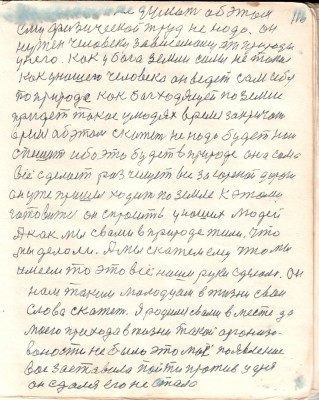 не думает об этом 116
ему физической труд не надо. он
нужен человеку зависимому от природы
у него. как у бога земли силы не такие
как у нашего человека он ведет сам себя
по природе как бог ходящей по земле
придет такое у людях время закричат
время об этом скажет не надо будет нам
спешит ибо это будет в природе она сама
всё сделает
он уже пришел ходит по земле к этому
готовится он спросить у наших людей
А как мы с вами в природе жили. что
мы делали. А мы скажем ему что мы
имеем то это всё наши руки сделали. Он
нам таким молодцам в жизни свои
слова скажет. Я родился с вами вместе до
моего прихода в жизни такой организо-
ваности не было это моё появление
Вас заставила пойти против чудея
он сдался его не стало